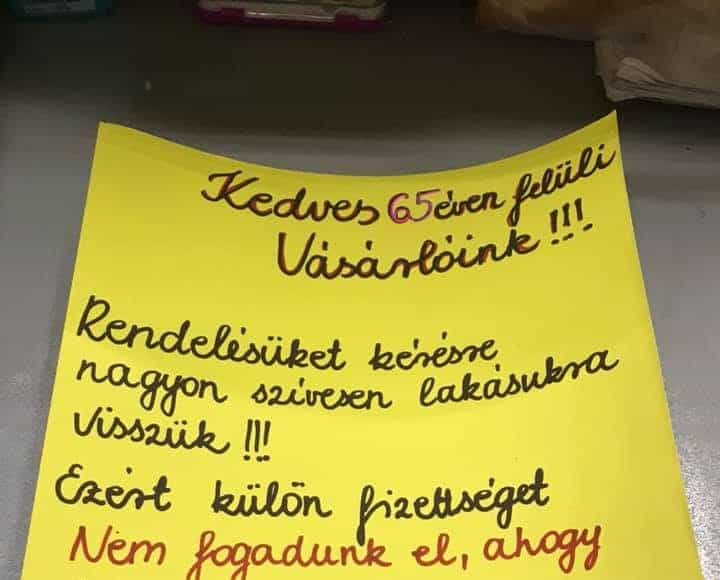 Kedves 65 éven felüli
Vásárlóink !!!
Rendelésüket kérésre
nagyon szívesen lakásukra
visszük !!!
Ezért külön fizettséget
Nem fogadunk el, ahogy